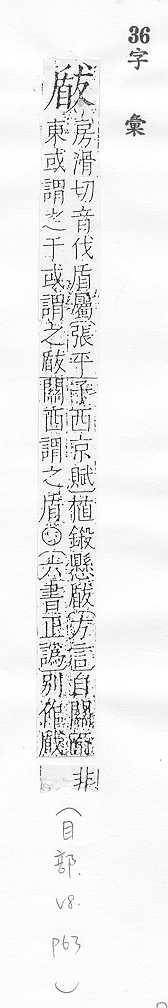 36
字彙
瞂
房滑切音伐盾屬張平子西京賦植鎩懸瞂方言自關而
東或謂之干或謂之瞂關西謂之盾○六書正譌別作𢧕
非
(目部. V8. P63)